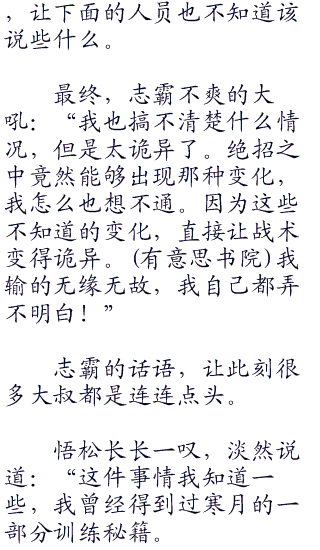 ，让下面的人员也不知道该
说些什么。
最终，志霸不爽的大
吼：“我也搞不清楚什么情
况，但是太诡异了。绝招之
中竟然能够出现那种变化，
我怎么也想不通。因为这些
不知道的变化，直接让战术
变得诡异。(有意思书院)我
输的无缘无故，我自己都弄
不明白！”
志霸的话语，让此刻很
多大叔都是连连点头。
悟松长长一叹，淡然说
道：“这件事情我知道一
些，我曾经得到过寒月的一
部分训练秘籍。